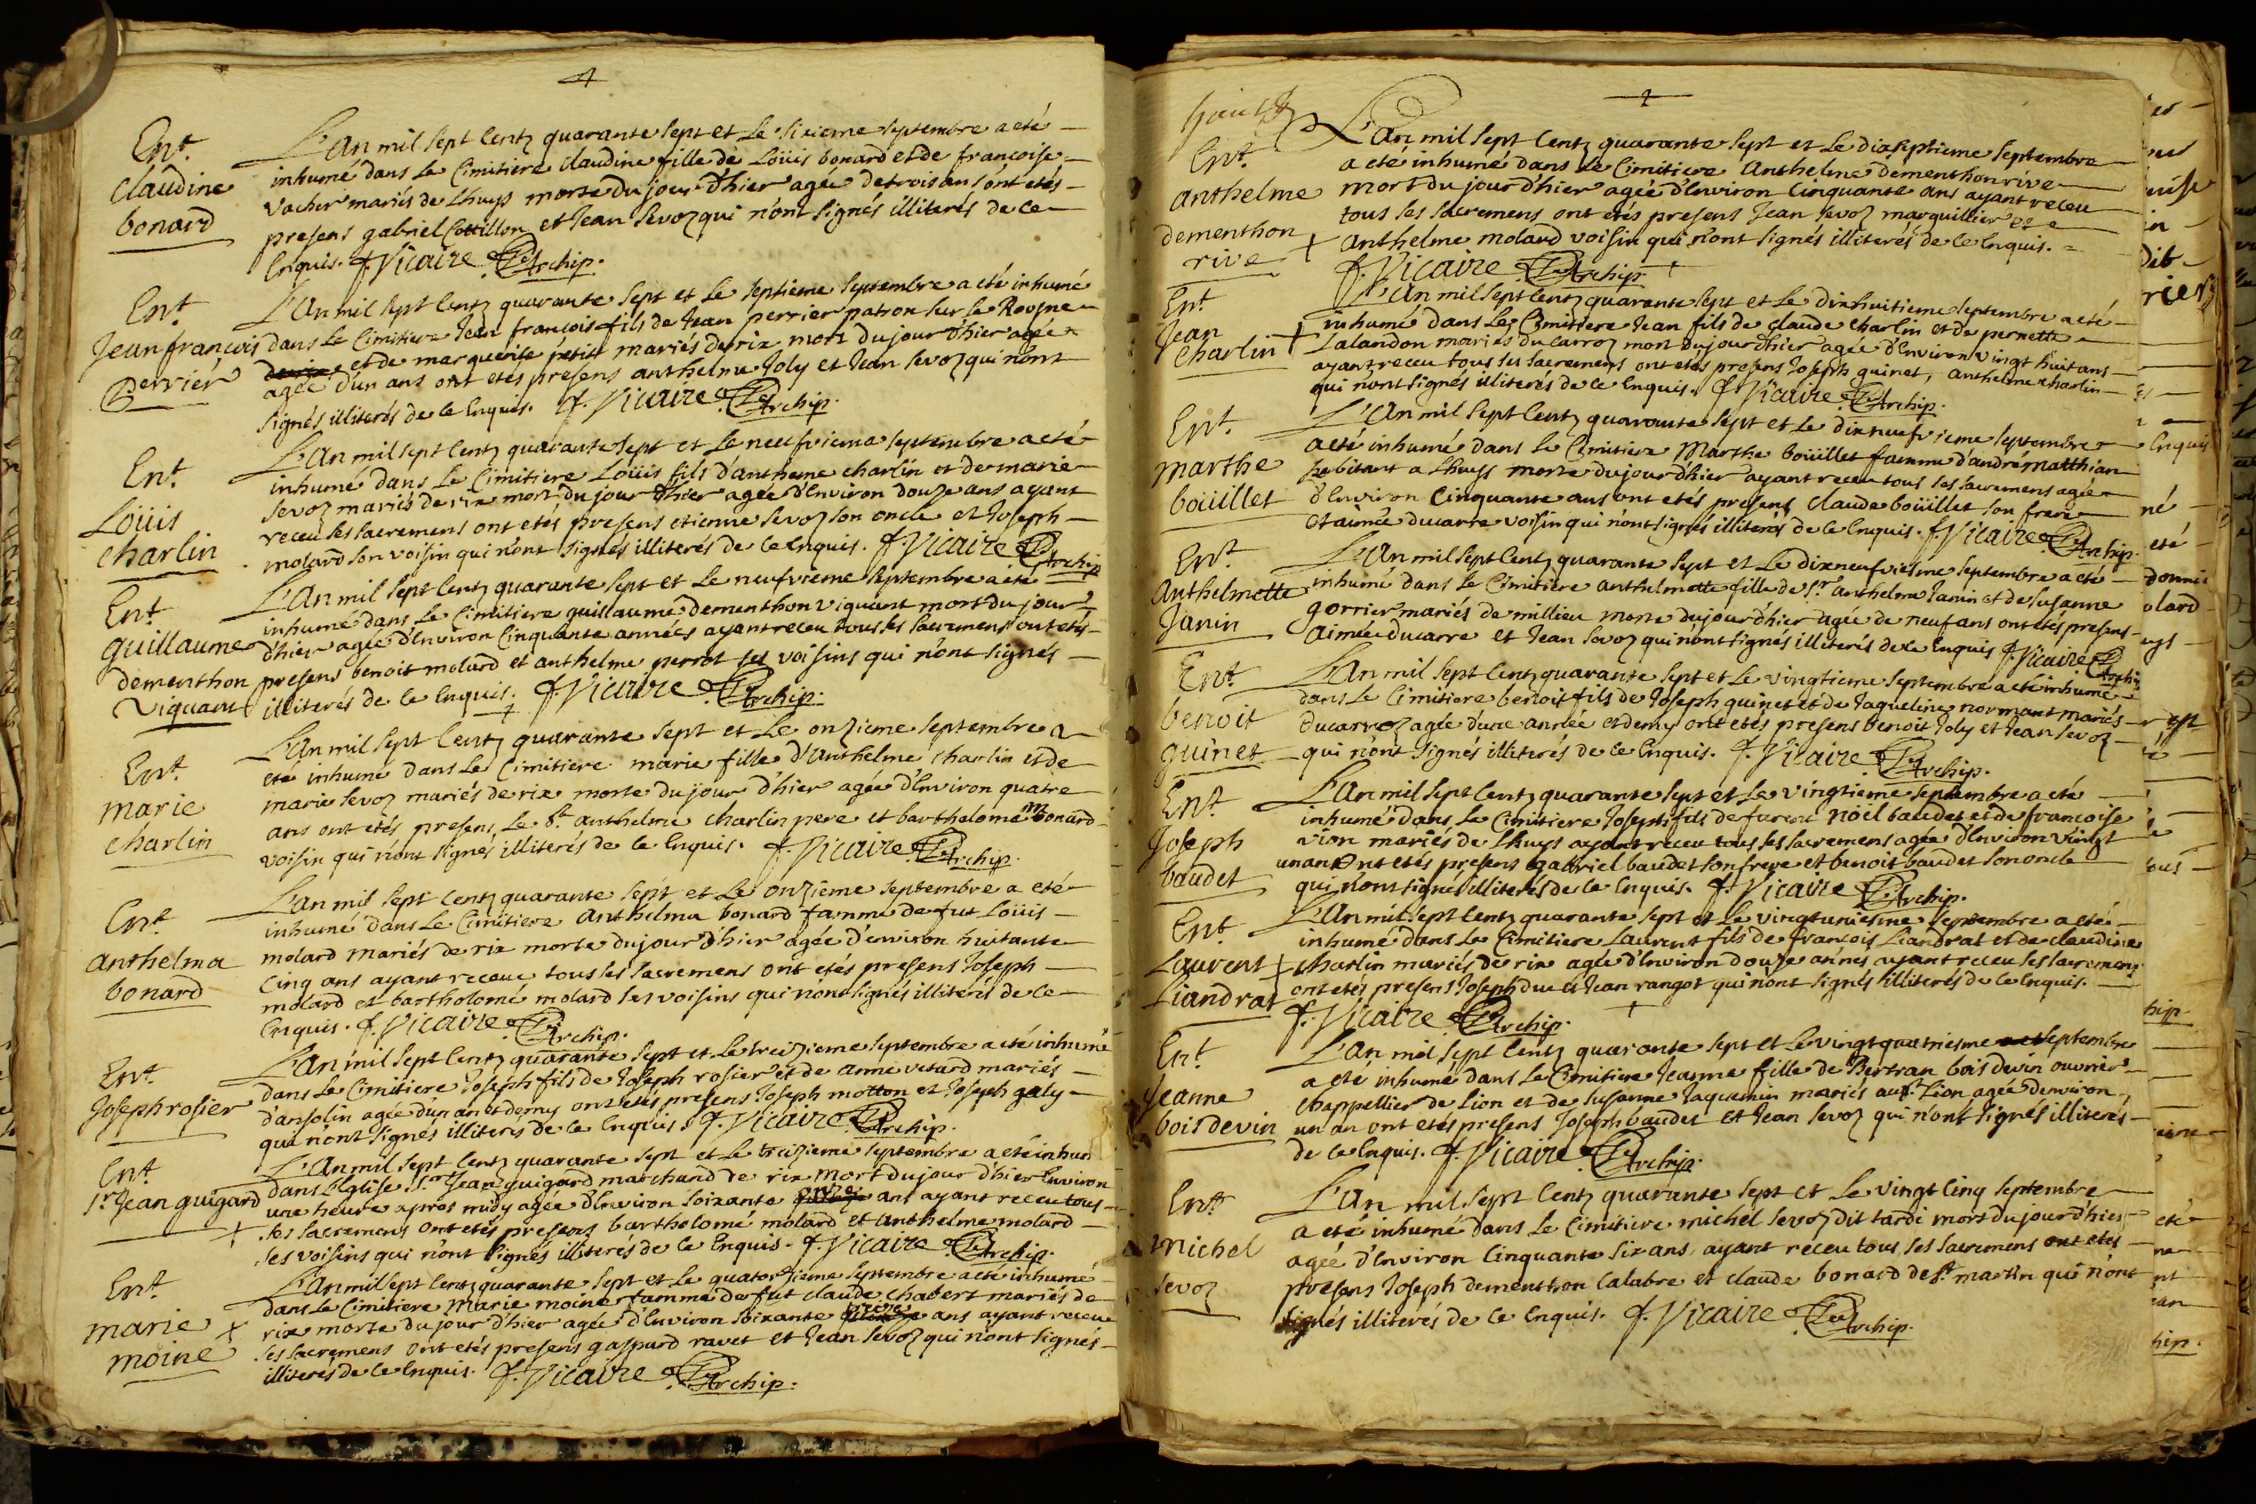 Ent.
claudine
bonard
L'An mil sept Centz quarante sept et Le sixieme septembre a eté
inhumé dans Le Cimitiere claudine fille de Loüis bonard et de francoise
vacher mariés de Lhuys morte du jour d'hier agée de trois an ont etés
presens gabriel Cottillon et Jean Sevoz qui n'ont signés illiterés de ce
Enquis. f. Vicaire Archip.
Ent.
Jean francois
Perrier
L'An mil sept Centz quarante sept et Le septieme septembre a eté inhumé
dans Le Cimitiere Jean francois fils de Jean perrier patron sur Le Rosne
et de marguerite petit mariés de rix mort du jour d'hier agée
agée d'un ans ont etés presens anthelme Joly et Jean Sevoz qui n'ont
signés illiterés de ce Enquis. f. Vicaire Archip.
Ent.
Loüis
charlin
L'An mil sept Centz quarante sept et Le neufvieme septembre a eté
inhumé dans Le Cimitiere Loüis fils d'antheme charlin et de marie
Sevoz mariés de rix mort du jour d'hier agée d'Environ douze ans ayant
receu Les sacremens ont etés presens etienne Sevoz son oncle et Joseph
molard son voisin qui n'ont signés illiterés de ce Enquis. f. Vicaire Archip
Ent.
guillaume
dementhon
viquant
L'An mil sept Centz quarante sept et Le neufvieme septembre a eté
inhumé dans Le Cimitiere guillaume dementhon viquant mort du jour
d'hier agée d'Environ Cinquante années ayant receu tous les sacremens ont etés
presens benoit molard et anthelme perrot ses voisins qui n'ont signés
illiterés de ce Enquis. f. Vicaire Archip.
Ent.
marie
charlin
L'An mil sept Centz quarante sept et Le onzieme septembre a
eté inhumé dans Le Cimitiere marie fille d'Anthelme charlin et de
marie Sevoz mariés de rix morte du jour d'hier agée d'Environ quatre
ans ont etés presens Le st. anthelme charlin pere et barthelome Bonard
voisin qui n'ont signés illiterés de ce Enquis. f. Vicaire Archip.
Ent.
anthelma
bonard
L'An mil sept Centz quarante sept et Le onzieme septembre a eté
inhumé dans Le Cimitiere Anthelma bonard famme de fut Loüis
molard mariés de rix morte du jour d'hier agée d'environ huitante
Cinq ans ayant receue tous ses sacremens ont etés presens Joseph
molard et bartholomé molard ses voisins qui n'ont signés illiterés de ce
Enquis. f. Vicaire Archip.
Ent.
Joseph rosier
L'An mil sept Centz quarante sept et Le treizieme septembre a eté inhumé
dans Le Cimitiere Joseph fils de Joseph rosier et de anne vetard mariés
d'ansolin agée d'un an et demy ont etés presens Joseph motton et Joseph galy
qui n'ont signés illiterés de ce Enquis. f. Vicaire Archip.
Ent.
Sr. Jean guigard
L'An mil sept Centz quarante sept et Le treizieme septembre a eté inhumé
dans L'Eglise Sr. Jean guigard marchand de rix mort du jour d'hier Environ
une heure apres midy agée d'Environ soixante ans ayant receu tous
ses sacremens ont etés presens bartholomé molard et anthelme molard
ses voisins qui n'ont signés illiterés de ce Enquis. f. Vicaire Archip.
Ent.
marie
moine
L'An mil sept Centz quarante sept et Le quatorzieme septembre a eté inhumé
dans Le Cimitiere marie moine famme de fut claude chabert mariés de
rix morte du jour d'hier agée d'Environ soixante ans ayant receue
ses sacremens ont etés presens gaspard ravet et Jean Sevoz qui n'ont signés
illiterés de ce Enquis. f. Vicaire Archip.
Ent.
anthelme
dementhon
rive
L'An mil sept Centz quarante sept et Le dixseptieme septembre
a eté inhumé dans Le Cimitiere Anthelme dementhon rive
mort du jour d'hier agée d'Environ Cinquante ans ayant receu
tous ses sacremens ont etés presens Jean Sevoz marguillier et
anthelme molard voisin qui n'ont signés illiterés de ce Enquis.
f. Vicaire Archip.
Ent.
Jean
charlin
L'An mil sept Centz quarante sept et Le dixhuitieme septembre a eté
inhumé dans Le Cimitiere Jean fils de claude charlin et de pernette
Lalandon mariés du Carroz mort du jour d'hier agée d'Environ vingt huit ans
ayant receu tous ses sacremens ont etés presens Joseph guinet, anthelme charlin
qui n'ont signés illiterés de ce Enquis. f. Vicaire Archip.
Ent.
marthe
boüillet
L'An mil sept Centz quarante sept et Le dixneufvieme septembre
a eté inhumé dans Le Cimitiere Marthe boüillet famme d'andré matthian
habitant a Lhuys morte du jour d'hier ayant receu tous ses sacremens agée
d'Environ Cinquante ans ont etés presens claude boüillet son frere
et aimée ducarre voisin qui n'ont signés illiterés de ce Enquis. f. Vicaire Archip.
Ent.
Anthelmette
Janin
L'An mil sept Centz quarante sept et Le dixneufviesme septembre a eté
inhumé dans Le Cimitiere anthelmette fille de Sr. anthelme Janin et de Susanne
gorrier mariés de millieu morte du jour d'hier agée de neuf ans ont etés presens
Aimée ducarre et Jean Sevoz qui n'ont signés illiterés de ce Enquis f. Vicaire Archip
Ent.
benoit
guinet
L'An mil sept Centz quarante sept et Le vingtieme septembre a eté inhumé
dans Le Cimitiere benoit fils de Joseph guinet et de Jaqueline normant mariés
ducarroz agée d'une année et demy ont etés presens benoit Joly et Jean Sevoz
qui n'ont signés illiterés de ce Enquis. f. Vicaire Archip.
Ent.
Joseph
baudet
L'An mil sept Centz quarante sept et Le vingtieme septembre a eté
inhumé dans Le Cimitiere Joseph fils de noël baudet et de francoise
vion mariés de Lhuys ayant receu tous ses sacremens agée d'Environ vingt
un an Ont etés presens gabriel baudet son frere et benoit baudet son oncle
qui n'ont signé illiterés de ce Enquis. f. Vicaire Archip.
Ent.
Laurent
Liandrat
L'An mil sept Centz quarante sept et Le vingtuniesme septembre a eté
inhumé dans Le Cimitiere Laurent fils de francois Liandrat et de claudine
charlin mariés de rix agée d'Environ douze années ayant receu ses sacremens
ont etés presens Joseph duc et Jean rangot qui n'ont signés illiterés de ce Enquis.
f. Vicaire Archip.
Ent.
Jeanne
bois devin
L'An mil sept Centz quarante sept et Le vingt quatriesme septembre
a eté inhumé dans Le Cimitiere Jeanne fille de Bertran bois devin ouvrier
chappellier de Lion et de Susanne Jaquemin mariés aust. Lion agée denviron
un an ont etés presens Joseph baudet et Jean Sevoz qui n'ont signés illiterés
de ce Enquis. f. Vicaire Archip.
Ent.
michel
Sevoz
L'An mil sept Centz quarante sept et Le vingt Cinq septembre
a eté inhumé dans Le Cimitiere michel Sevoz dit tardi mort du jour d'hier
agée d'Environ Cinquante six ans ayant receu tous ses sacremens ont etés
presens Joseph dementhon Calabre et claude bonard de st. martin qui n'ont
signés illiterés de ce Enquis. f. Vicaire Archip.